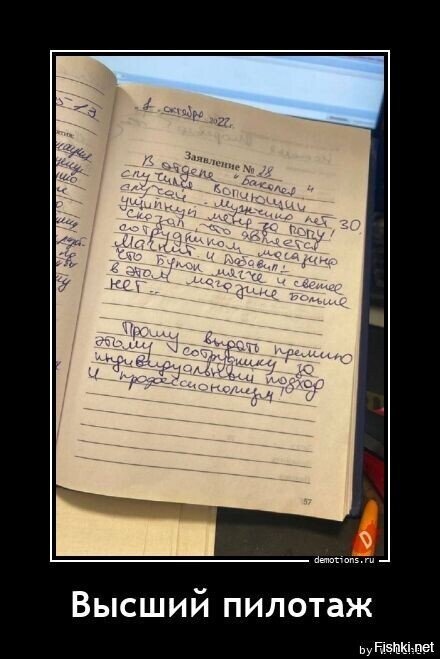 1 октября 2022г.
Заявление № 28
В отделе "Бакалея"
случился вопиющий
случай. Мужчина лет 30,
ущипнул меня за попу!
Сказал что является
сотрудником магазина
Магнит и добавил!
что булок мягче и свежее
в этом магазине больше
нет..
Прошу выдать премию
этому сотруднику за
индивидуальный подход
и профессионализм!
57
demotions.ru
Высший пилотаж
Fishki.net
by